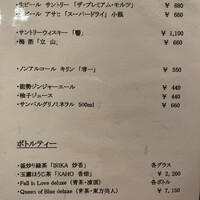 ・生ビール サントリー「ザ・プレミアム・モルツ」 ¥ 880
・ビール アサヒ「スーパードライ」小瓶 ¥ 660
・サントリーウィスキー「響」 ¥ 1,100
・梅酒「立山」 ¥ 660
・ノンアルコール キリン「零一」 ¥ 550
・能勢ジンジャーエール ¥ 440
・柚子ジュース ¥ 440
・サンペルグリノミネラル 500ml ¥ 660
ボトルティー
・釜炒り緑茶「IRIKA 炒香」 各グラス
・玉露ほうじ茶「KAHO 香焙」 ¥ 2,200
・Fall in Love deluxe (青茶・凍頂) 各ボトル
・Queen of Blue deluxe (青茶・東方美人) ¥ 7,150